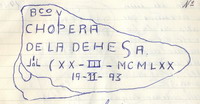 Nº
Bco y
CHOPERA
DE LA DEHESA.
J&L (XX-III-MCMLXX
19-VI-93